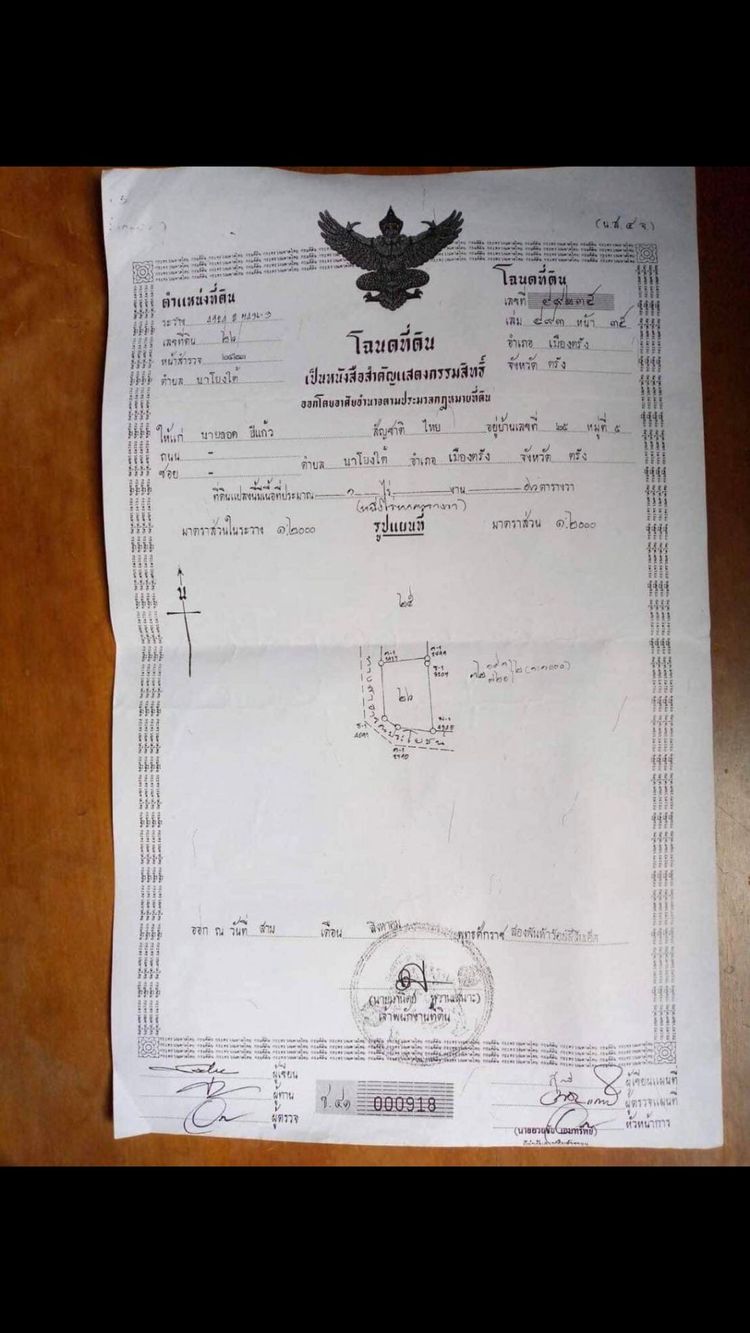 (น.ส. ๔ จ)
ตำแหน่งที่ดิน
ระวาง
เลขที่ดิน ๒๖
หน้าสำรวจ
ตำบล นาโยงใต้
โฉนดที่ดิน
เลขที่ ๔๙๒๓๕
เล่ม ๔๙๓ หน้า ๓๕
อำเภอ เมืองตรัง
จังหวัด ตรัง
โฉนดที่ดิน
เป็นหนังสือสำคัญแสดงกรรมสิทธิ์
ออกโดยอาศัยอำนาจตามประมวลกฎหมายที่ดิน
ให้แก่ สัญชาติ ไทย อยู่บ้านเลขที่ ๒๕ หมู่ที่ ๕
ถนน - ตำบล นาโยงใต้ อำเภอ เมืองตรัง จังหวัด ตรัง
ซอย -
ที่ดินแปลงนี้มีเนื้อที่ประมาณ ๑ ไร่ - งาน ตารางวา
มาตราส่วนในระวาง ๑:๒๐๐๐ รูปแผนที่ มาตราส่วน ๑:๒๐๐๐
น
๒๕
๒๖
ทางสาธารณประโยชน์
ออก ณ วันที่ สาม เดือน สิงหาคม พุทธศักราช
เจ้าพนักงานที่ดิน
ผู้เขียน
ผู้ทาน
ผู้ตรวจ
ช.๔๑ 000918
ผู้เขียนแผนที่
ผู้ตรวจแผนที่
หัวหน้าการ